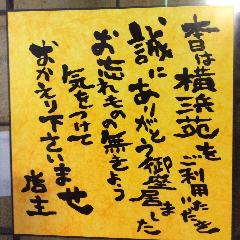 本日は横浜苑を
ご利用いただき
誠にありがとう御座居ました
お忘れもの無きよう
気をつけて
おかえり下さいませ
店主